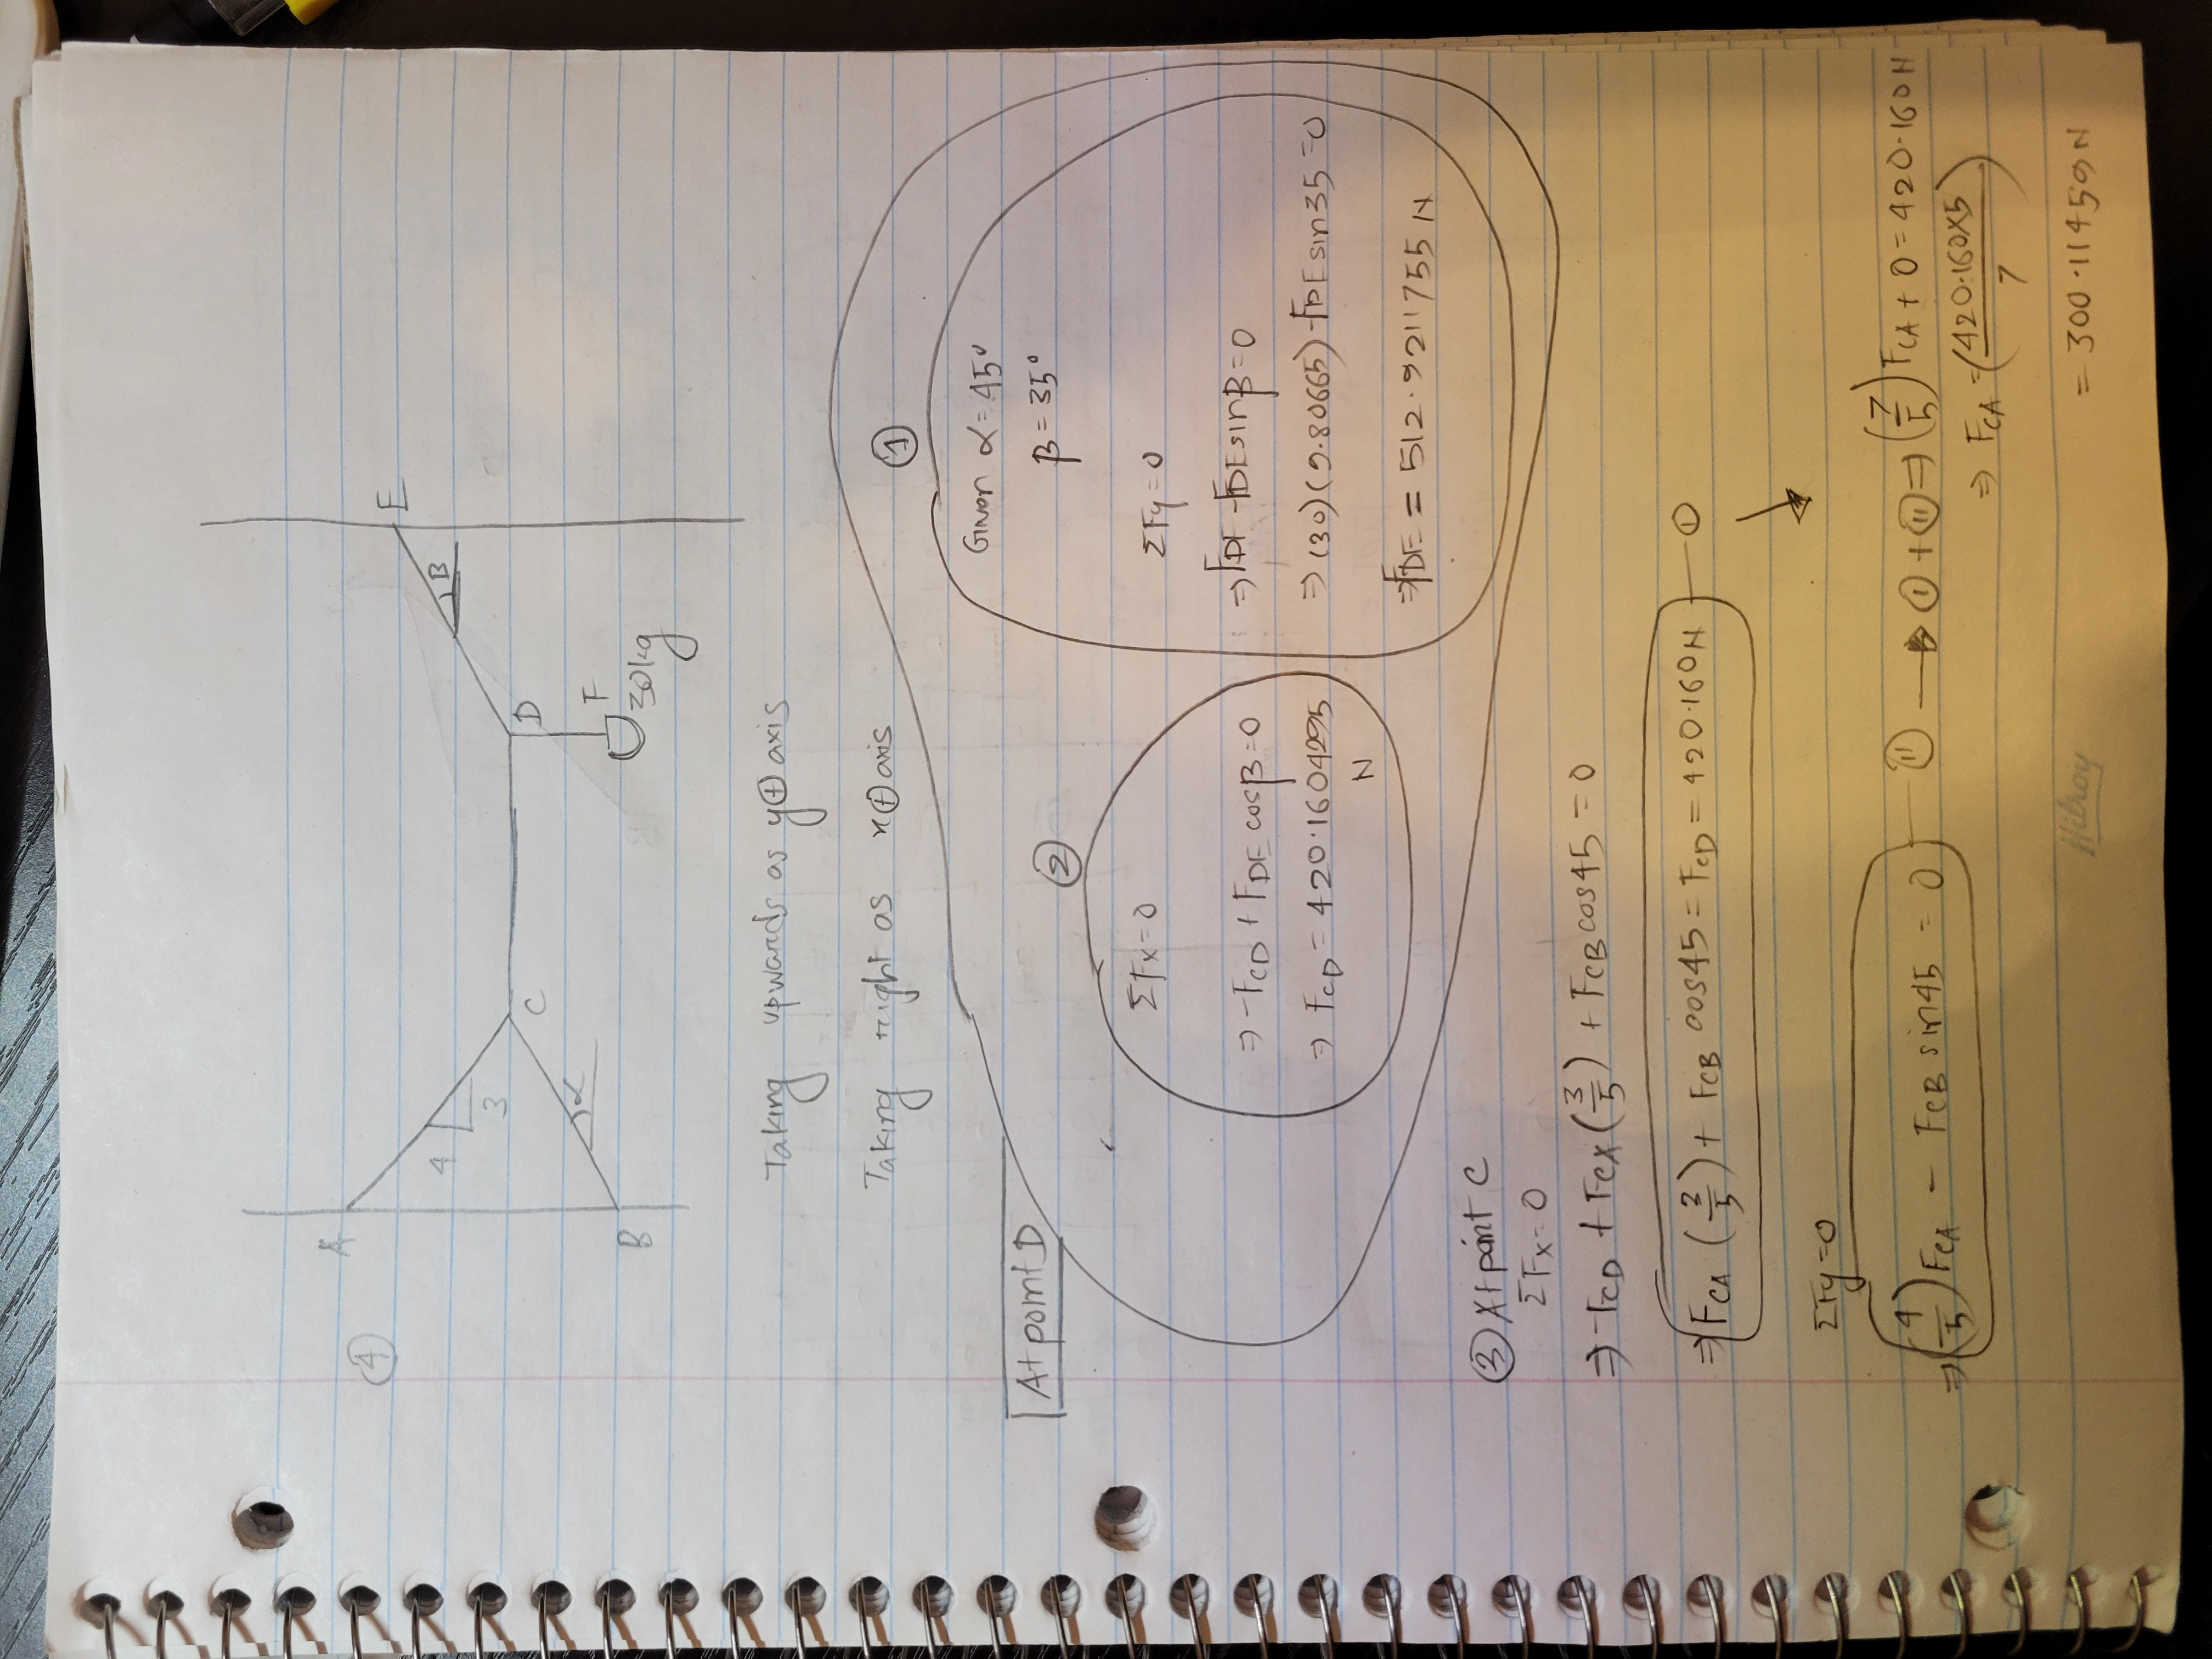 ④
A
4
3
C
α
B
E
B
D
F
30kg
Taking upwards as y⊕ axis
Taking right as x⊕ axis
①
Given α = 45°
β = 35°
ΣFy = 0
⇒ F_DF - F_DE sin β = 0
⇒ (30)(9.80665) - F_DE sin 35 = 0
⇒ F_DE = 512.9211755 N
At point D
②
ΣFx = 0
⇒ -F_CD + F_DE cos β = 0
⇒ F_CD = 420.1604295
N
③ At point C
ΣFx = 0
⇒ -F_CD + F_CA (3/5) + F_CB cos 45 = 0
⇒ F_CA (3/5) + F_CB cos 45 = F_CD = 420.160 N — Ⓘ
ΣFy = 0
⇒ (4/5) F_CA - F_CB sin 45 = 0 — Ⓘ Ⓘ → Ⓘ + Ⓘ Ⓘ ⇒ (7/5) F_CA + 0 = 420.160 N
⇒ F_CA = (420.160×5 / 7)
= 300.11459 N
Hilroy